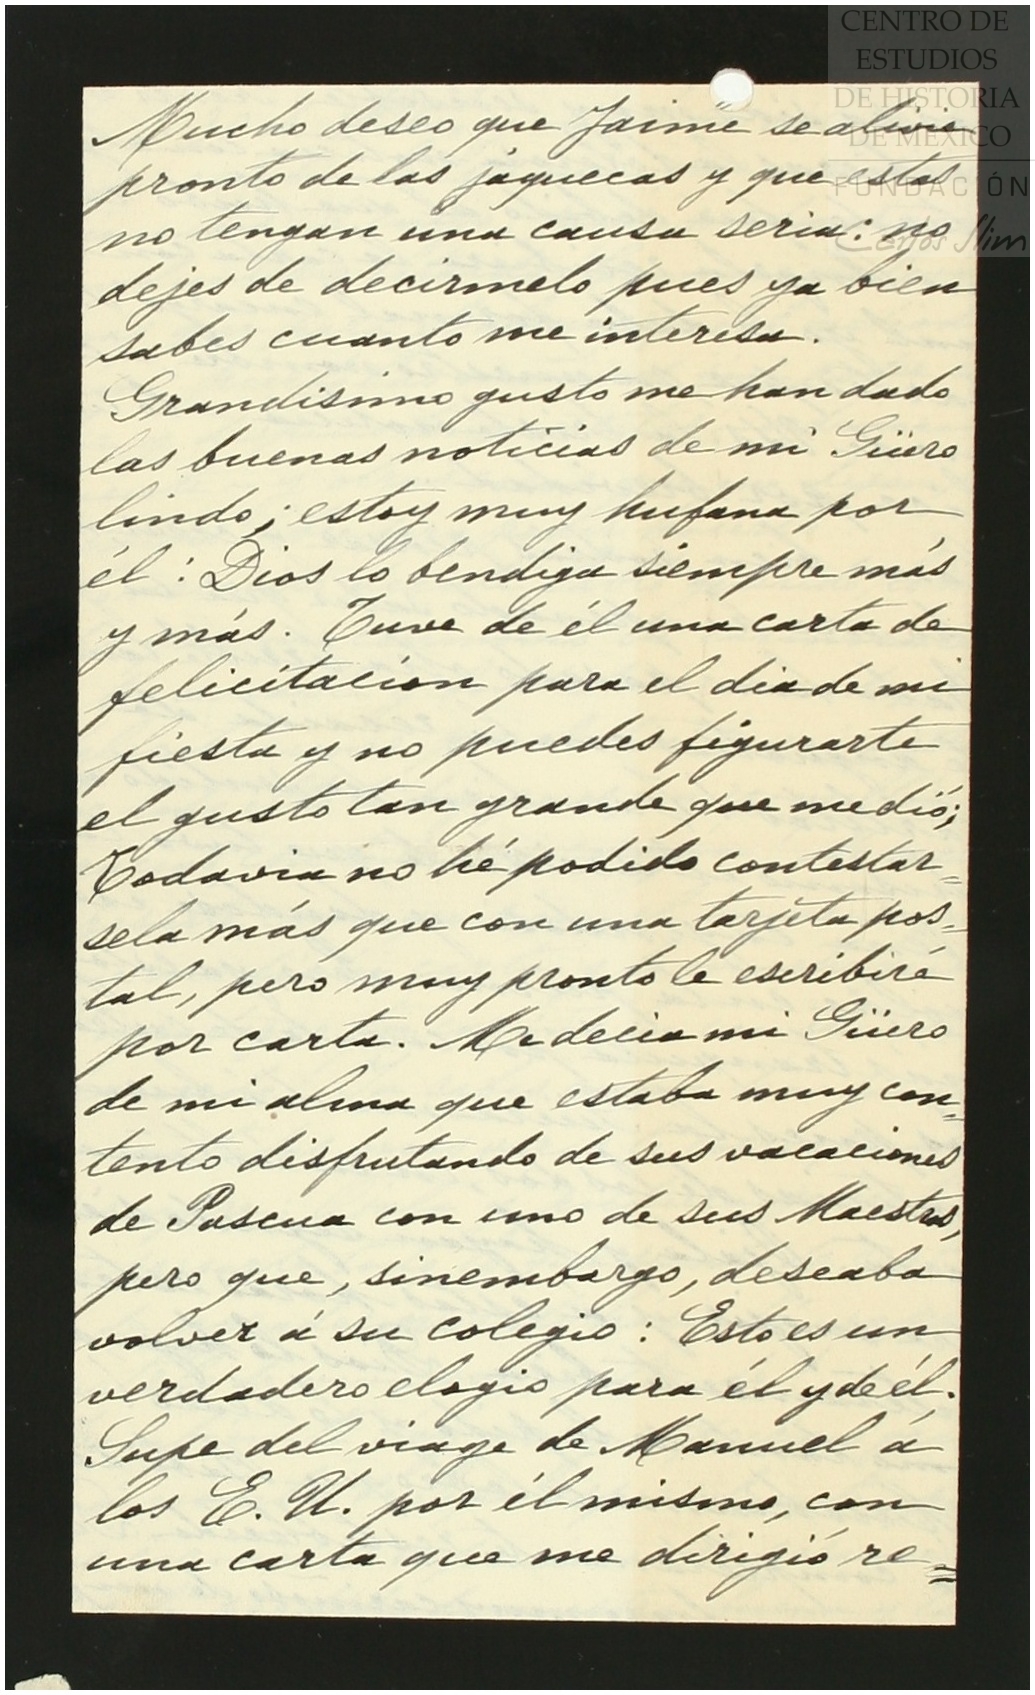 CENTRO DE
ESTUDIOS
DE HISTORIA
DE MÉXICO
FUNDACIÓN
Carlos Slim
Mucho deseo que Jaime se alivie
pronto de las jaquecas y que estas
no tengan una causa seria: no
dejes de decirmelo pues ya bien
sabes cuanto me interesa.
Grandisimo gusto me han dado
las buenas noticias de mi Güero
lindo; estoy muy hufana por
él: Dios lo bendiga siempre más
y más. Tuve de él una carta de
felicitacion para el dia de mi
fiesta y no puedes figurarte
el gusto tan grande que me dió;
Todavia no hé podido contestar=
sela más que con una tarjeta pos=
tal, pero muy pronto le escribiré
por carta. Me decia mi Güero
de mi alma que estaba muy con=
tento disfrutando de sus vacaciones
de Pascua con uno de sus Maestros,
pero que, sinembargo, deseaba
volver á su colegio: Esto es un
verdadero elogio para él y de él.
Supe del viage de Manuel á
los E. U. por él mismo, con
una carta que me dirigió re=